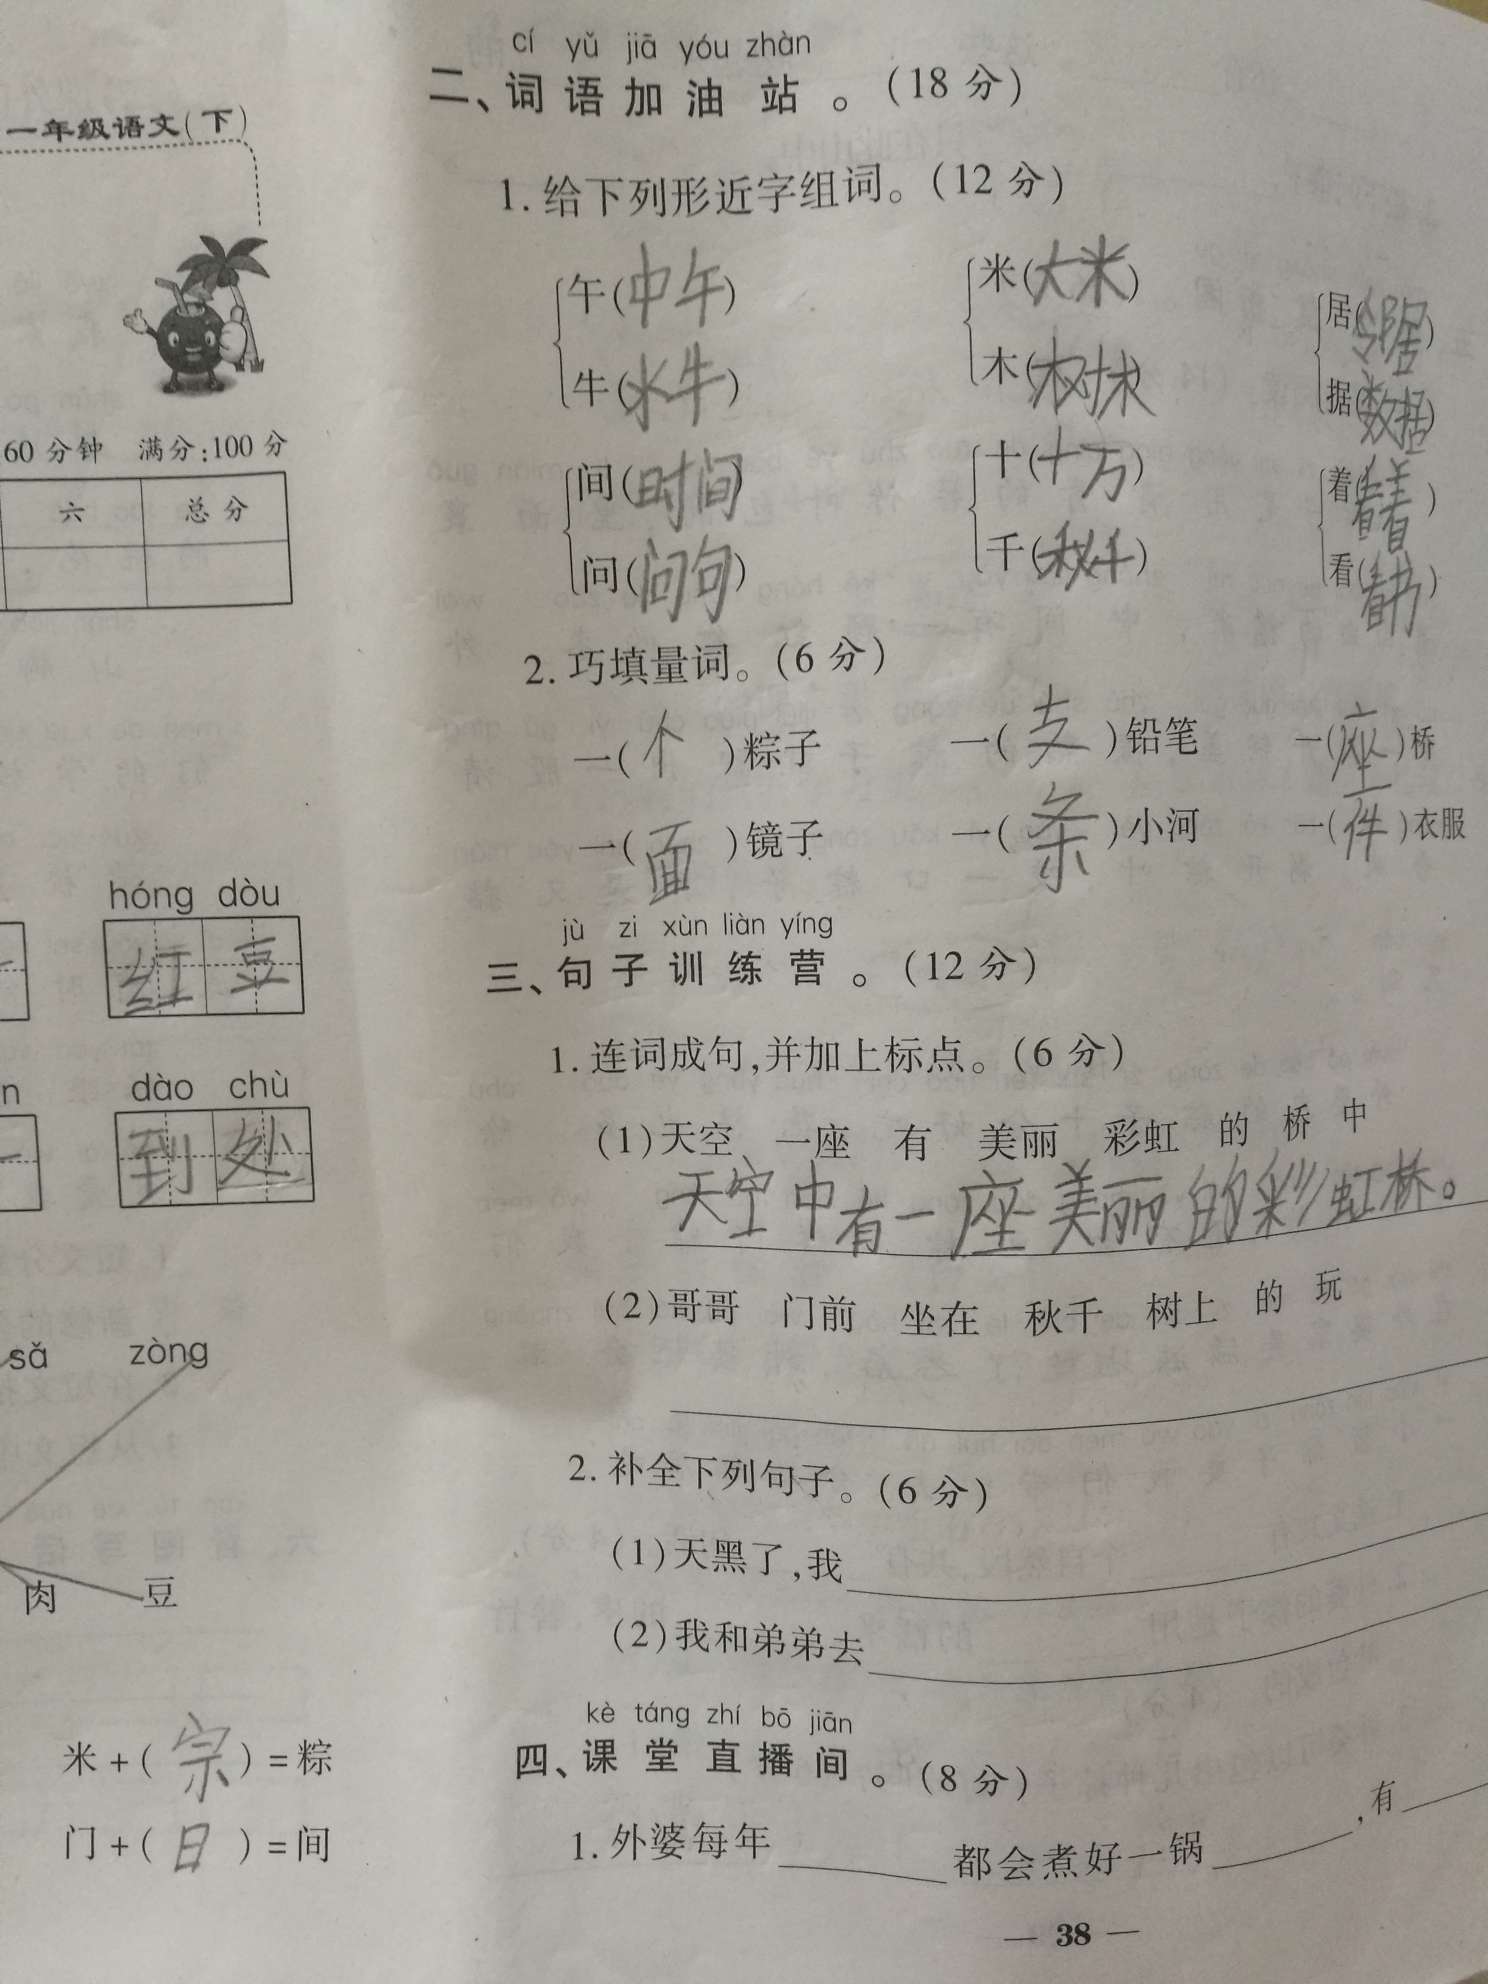 一年级语文(下)
60分钟 满分:100分
六 总分
hóng dòu
红豆
dào chù
到处
sǎ zòng
肉 豆
米+(宗)=粽
门+(日)=间
cí yǔ jiā yóu zhàn
二、词语加油站。(18分)
1.给下列形近字组词。(12分)
午(中午) 米(大米) 居(邻居)
牛(水牛) 木(树木) 据(数据)
间(时间) 十(十万) 着(看着)
问(问句) 千(秋千) 看(看书)
2.巧填量词。(6分)
一(个)粽子 一(支)铅笔 一(座)桥
一(面)镜子 一(条)小河 一(件)衣服
jù zi xùn liàn yíng
三、句子训练营。(12分)
1.连词成句,并加上标点。(6分)
(1)天空 一座 有 美丽 彩虹 的 桥 中
天空中有一座美丽的彩虹桥。
(2)哥哥 门前 坐在 秋千 树上 的 玩
2.补全下列句子。(6分)
(1)天黑了,我
(2)我和弟弟去
kè táng zhí bō jiān
四、课堂直播间。(8分)
1.外婆每年 都会煮好一锅 ,有
— 38 —